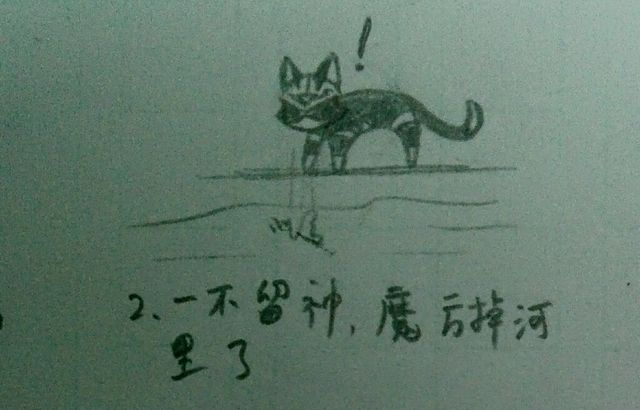 !
2、一不留神,魔方掉河
里了